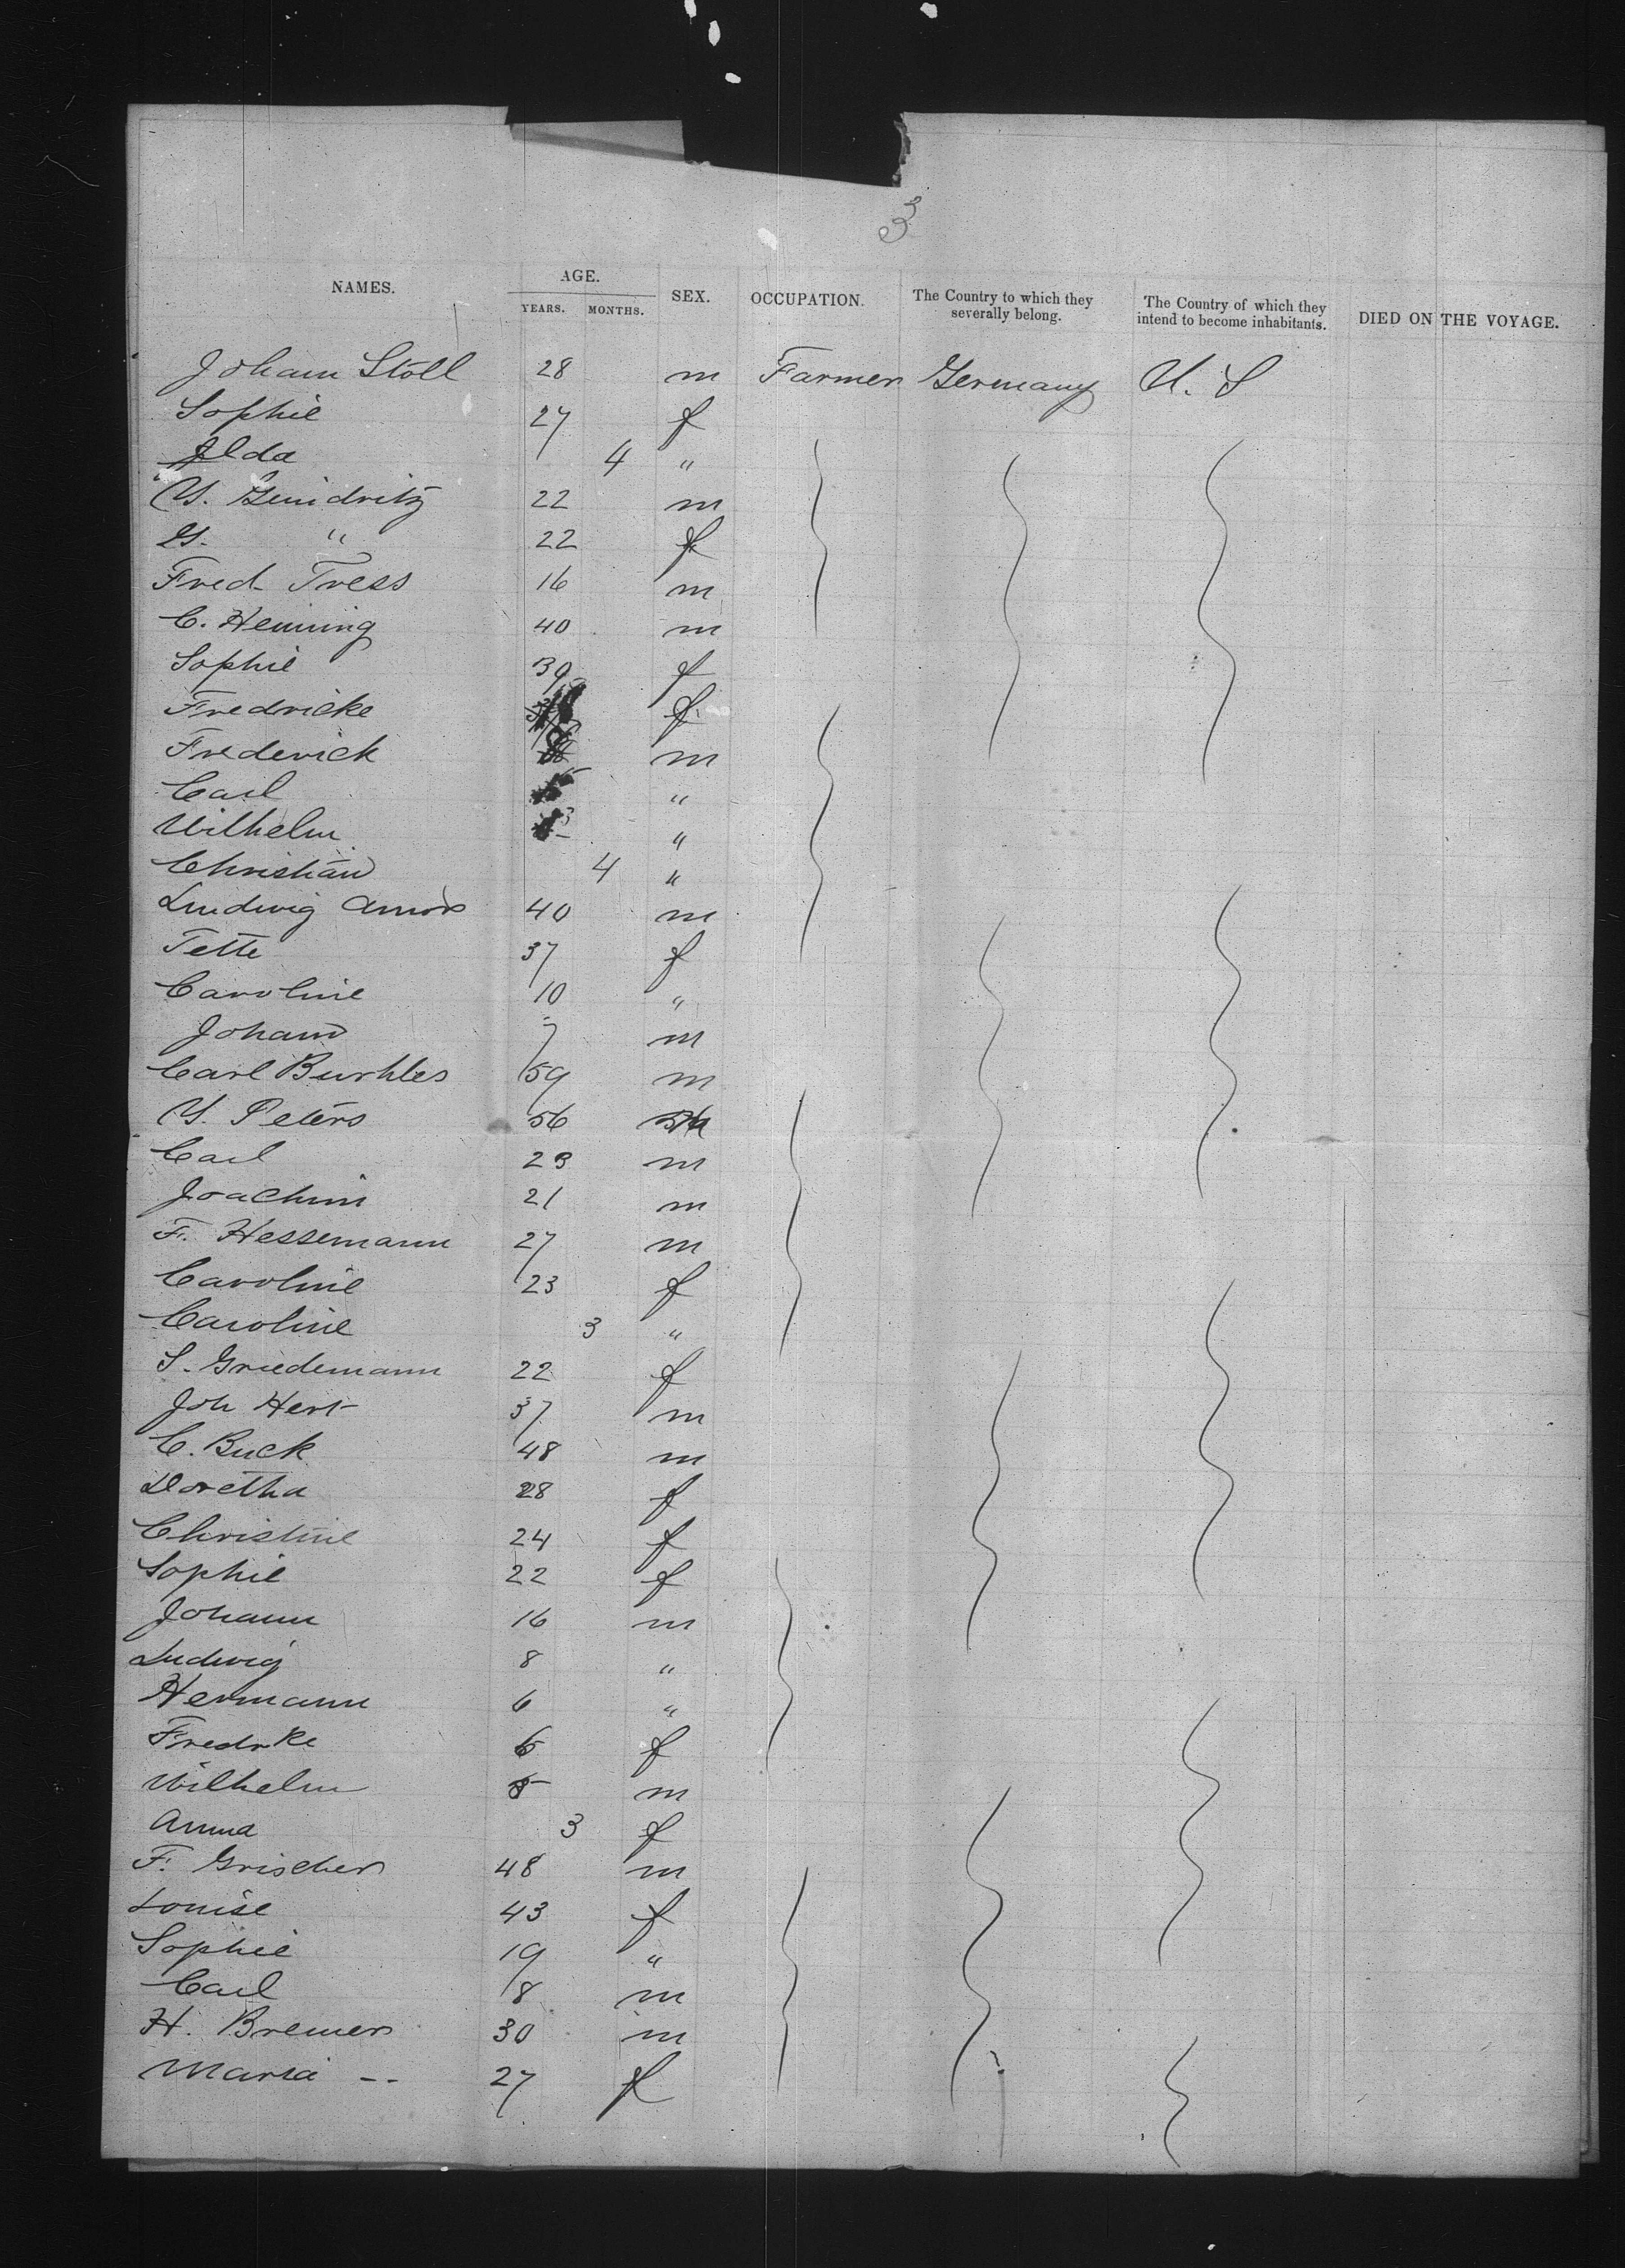 3
NAMES. AGE. SEX. OCCUPATION. The Country to which they severally belong. The Country of which they intend to become inhabitants. DIED ON THE VOYAGE.
YEARS. MONTHS.
Johann Stoll 28 m Farmer Germany U. S
Sophie 27 f
Alda 4 "
22 m
" 22 f
Fred Tress 16 m
C. Henning 40 m
Sophie 39 f
Fredricke f
Frederick m
Carl "
Wilhelm "
Christian 4 "
Ludwig 40 m
Tette 37 f
Caroline 10 "
Johann 7 m
Carl 59 m
Y. Peters 56 m
Carl 23 m
Joachim 21 m
F. Hessemann 27 m
Caroline 23 f
Caroline 3 "
S. Griedemann 22 f
Joh Hert 37 m
C. Buck 48 m
Doretha 28 f
Christine 24 f
Sophie 22 f
Johann 16 m
Ludwig 8 "
Hermann 6 "
Fredrke 6 f
Wilhelm m
Anna 3 f
F. Grischer 48 m
Louise 43 f
Sophie 19 "
Carl 8 m
H. Bremer 30 m
Maria -- 27 f